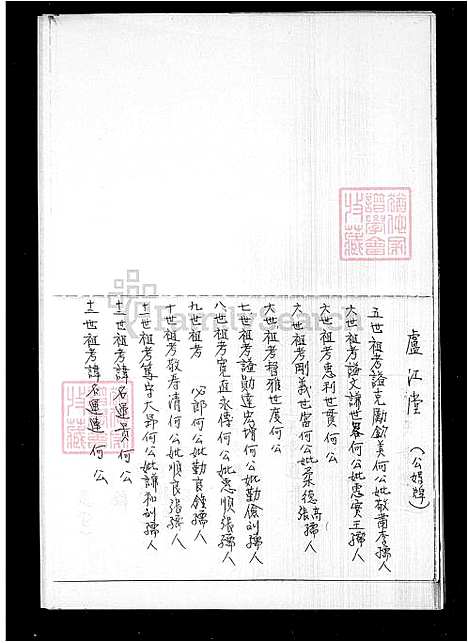 盧江堂 (公媽牌)
五世祖考諡克勵欽美何公妣敬懿李孺人
六世祖考諡文謙世畧何公妣忠實王孺人
六世祖考忠利世貫何公
六世祖考剛義世富何公妣柔德高張孺人
六世祖考智雅世度何公
七世祖考諡勤達宏壻何公妣勤儉刘孺人
八世祖考寬直永傳何公妣忠順張孺人
九世祖考 必郎何公妣勤良錢孺人
十世祖考敬春清何公妣順良張孺人
十一世祖考篤字大昇何公妣謙和刘孺人
十二世祖考諱名運貴何公
十二世祖考諱名運進何公
FamilySearch